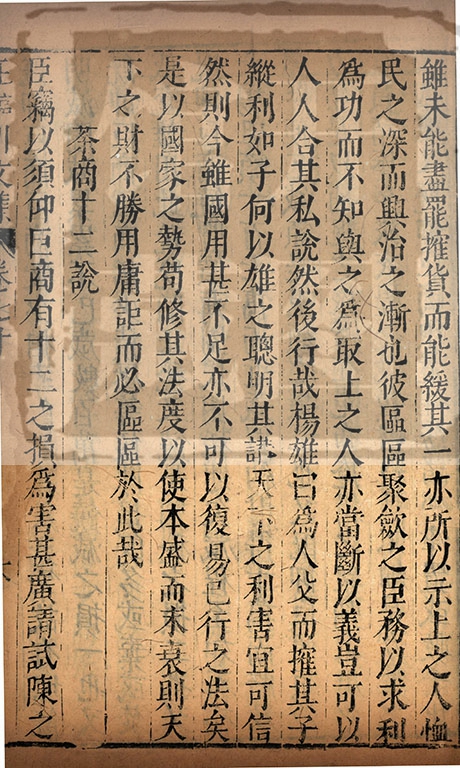 雖未能盡罷㩁貨而能緩其一亦所以示上之人恤
民之深而興治之漸也彼區區聚歛之臣務以求利
為功而不知與之為取上之人亦當斷以義豈可以
人人合其私說然後行哉楊雄曰為人父而㩁其子
縱利如子何以雄之聰明其講天下之利害宜可信
然則今雖國用甚不足亦不可以復易已行之法矣
是以國家之勢苟修其法度以使本盛而末衰則天
下之財不勝用庸詎而必區區於此哉
茶商十二說
臣竊以須仰巨商有十二之損為害甚廣請試陳之